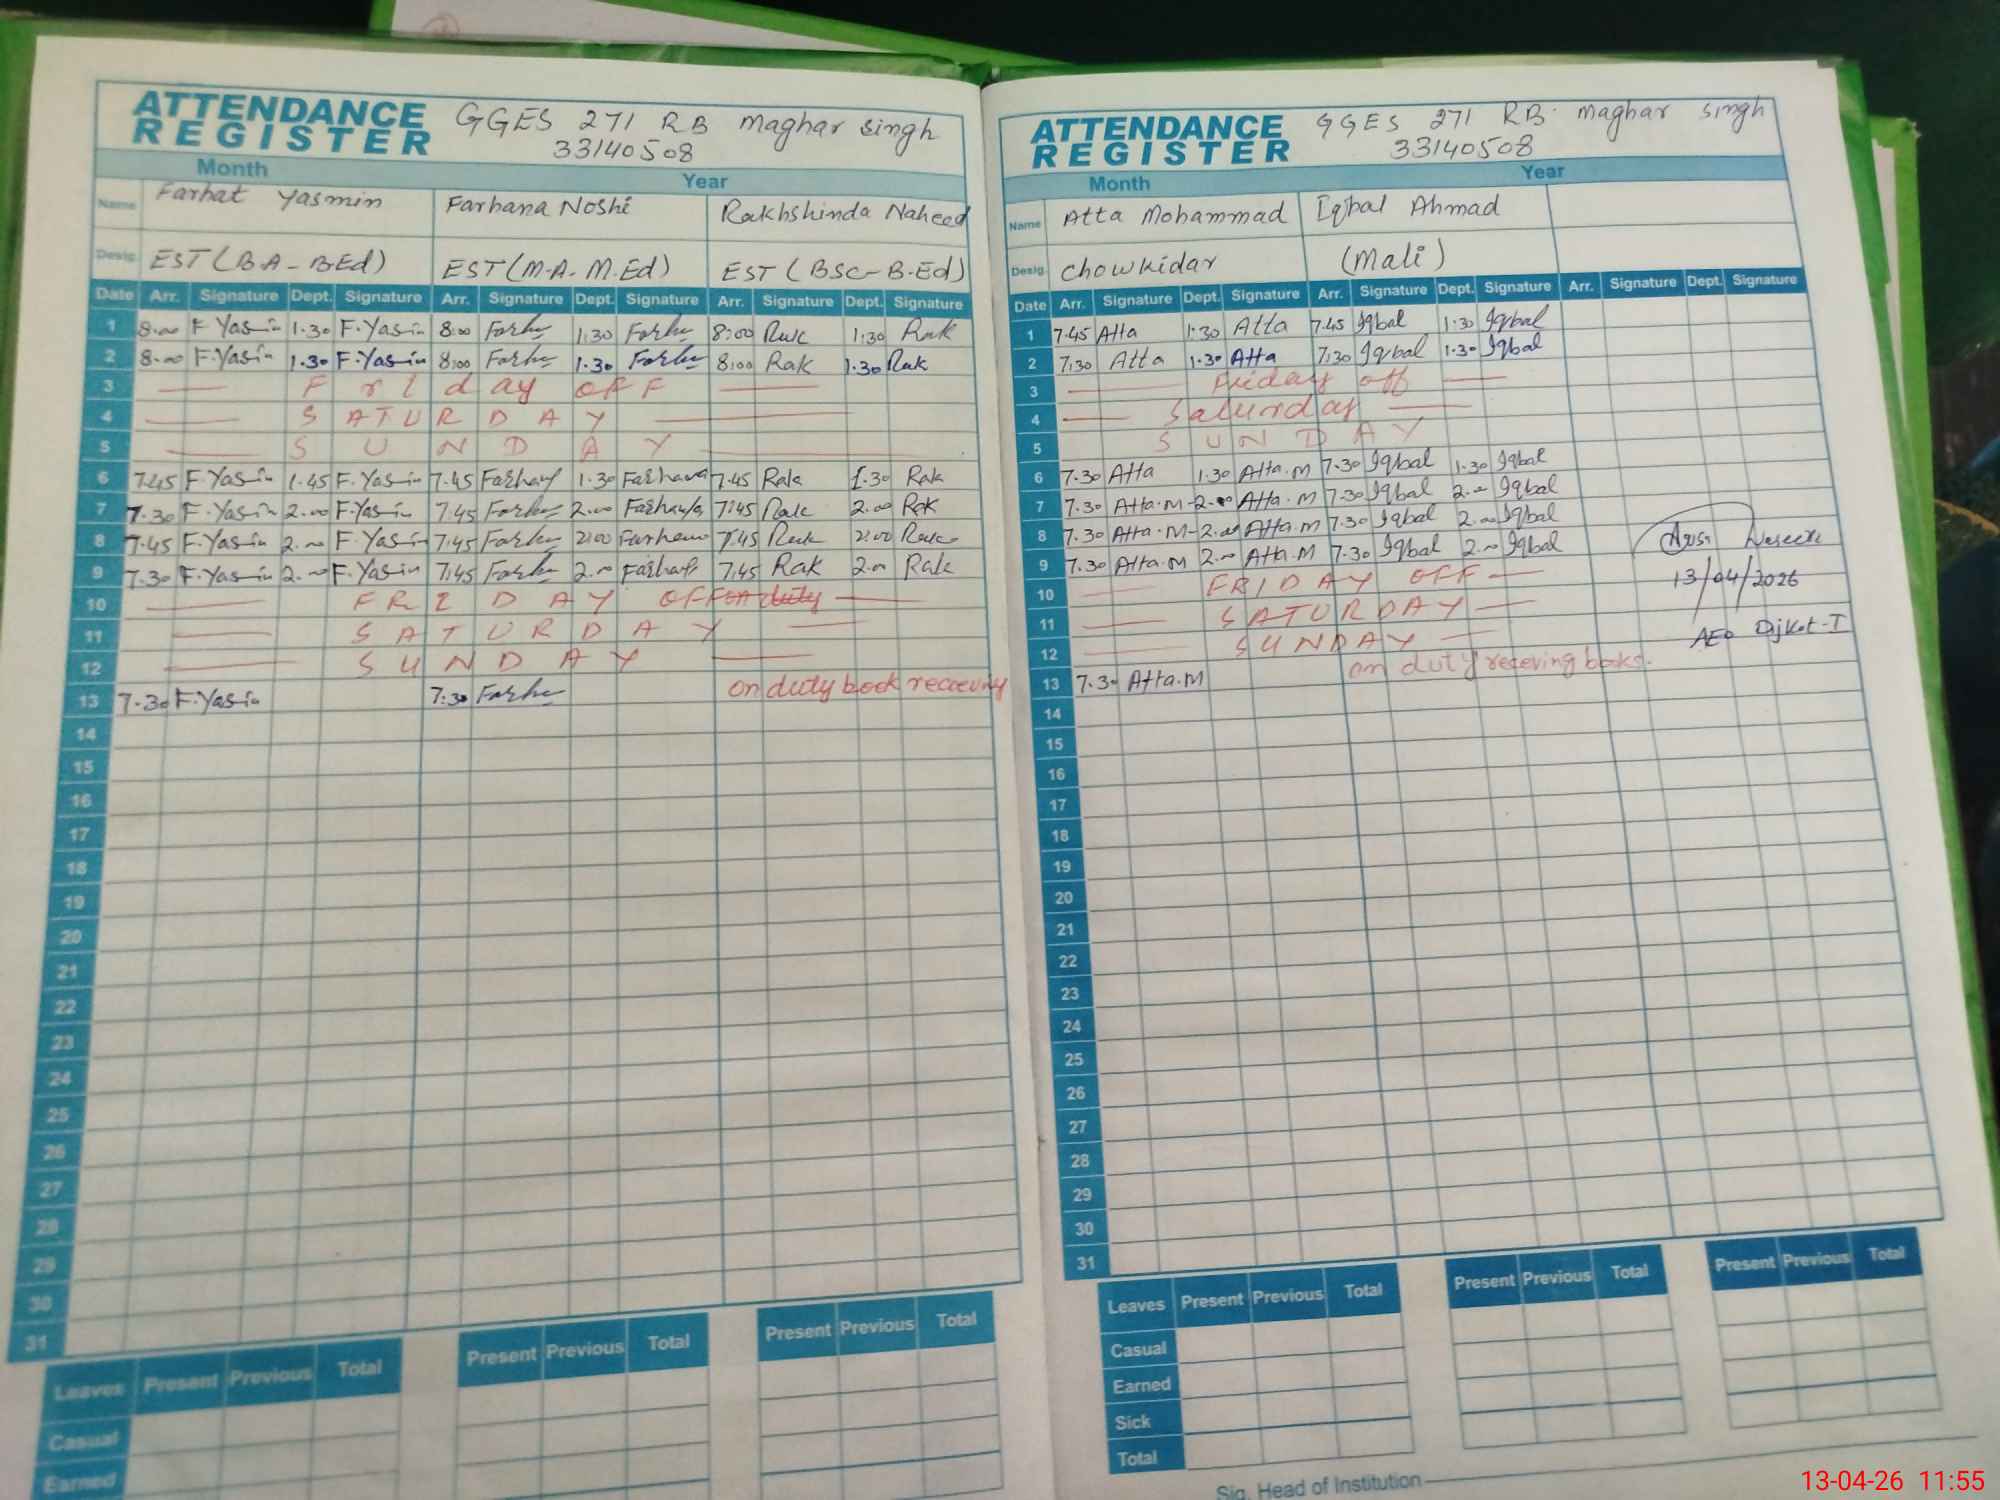 ATTENDANCE REGISTER GGES 271 RB Maghar Singh
33140508
Month Year
Name Farhat Yasmin Farhana Noshi Rakhshinda Naheed
Desig. EST (BA-BEd) EST (M.A. M.Ed) EST (BSc-B.Ed)
Date Arr. Signature Dept. Signature Arr. Signature Dept. Signature Arr. Signature Dept. Signature
1 8.00 F Yasin 1.30 F.Yasin 8:00 1:30 8:00 Rak 1:30 Rak
2 8.00 F.Yasin 1.30 F.Yasin 8:00 1.30 8:00 Rak 1.30 Rak
3 Friday OFF
4 SATURDAY
5 SUNDAY
6 7.45 F.Yasin 1.45 F.Yasin 7.45 1.30 Farhana 7.45 Rak 1.30 Rak
7 7.30 F.Yasin 2.00 F.Yasin 7.45 2.00 7:45 Rak 2.00 Rak
8 7.45 F.Yasin 2.00 F.Yasin 7.45 2:00 7.45 Rak 2:00 Rak
9 7.30 F.Yasin 2.00 F.Yasin 7:45 2.00 7.45 Rak 2.00 Rak
10 FRIDAY OFF
11 SATURDAY
12 SUNDAY
13 7.30 F.Yasin 7.30 on duty book receving
14
15
16
17
18
19
20
21
22
23
24
25
26
27
28
29
30
31
Leaves Present Previous Total Present Previous Total Present Previous Total
Casual
Earned
ATTENDANCE REGISTER GGES 271 RB Maghar Singh
33140508
Month Year
Name Atta Mohammad Iqbal Ahmad
Desig. Chowkidar (Mali)
Date Arr. Signature Dept. Signature Arr. Signature Dept. Signature Arr. Signature Dept. Signature
1 7.45 Atta 1:30 Atta 7.45 Iqbal 1:30 Iqbal
2 7.30 Atta 1.30 Atta 7.30 Iqbal 1.30 Iqbal
3 Friday off
4 Saturday
5 SUNDAY
6 7.30 Atta 1.30 Atta.M 7.30 Iqbal 1.30 Iqbal
7 7.30 Atta.M 2.00 Atta.M 7.30 Iqbal 2.00 Iqbal
8 7.30 Atta.M 2.00 Atta.M 7.30 Iqbal 2.00 Iqbal
9 7.30 Atta.M 2.00 Atta.M 7.30 Iqbal 2.00 Iqbal
13/04/2026
10 FRIDAY OFF
11 SATURDAY
AEO Dijkot-I
12 SUNDAY
13 7.30 Atta.M on duty receving books.
14
15
16
17
18
19
20
21
22
23
24
25
26
27
28
29
30
31
Leaves Present Previous Total Present Previous Total Present Previous Total
Casual
Earned
Sick
Total
Sig. Head of Institution
13-04-26 11:55